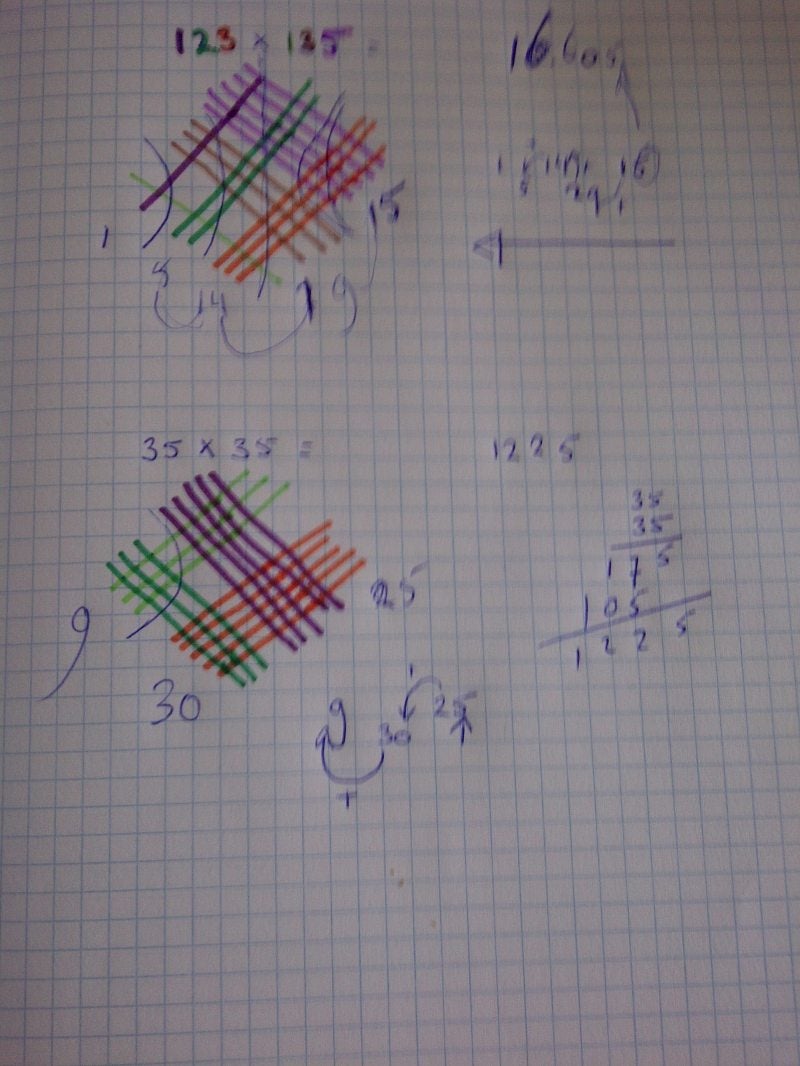 123 x 135 =
16.605
1
5
14
19
15
35 x 35 = 1225
35
35
175
105
1225
9
25
30
9 30 25
+